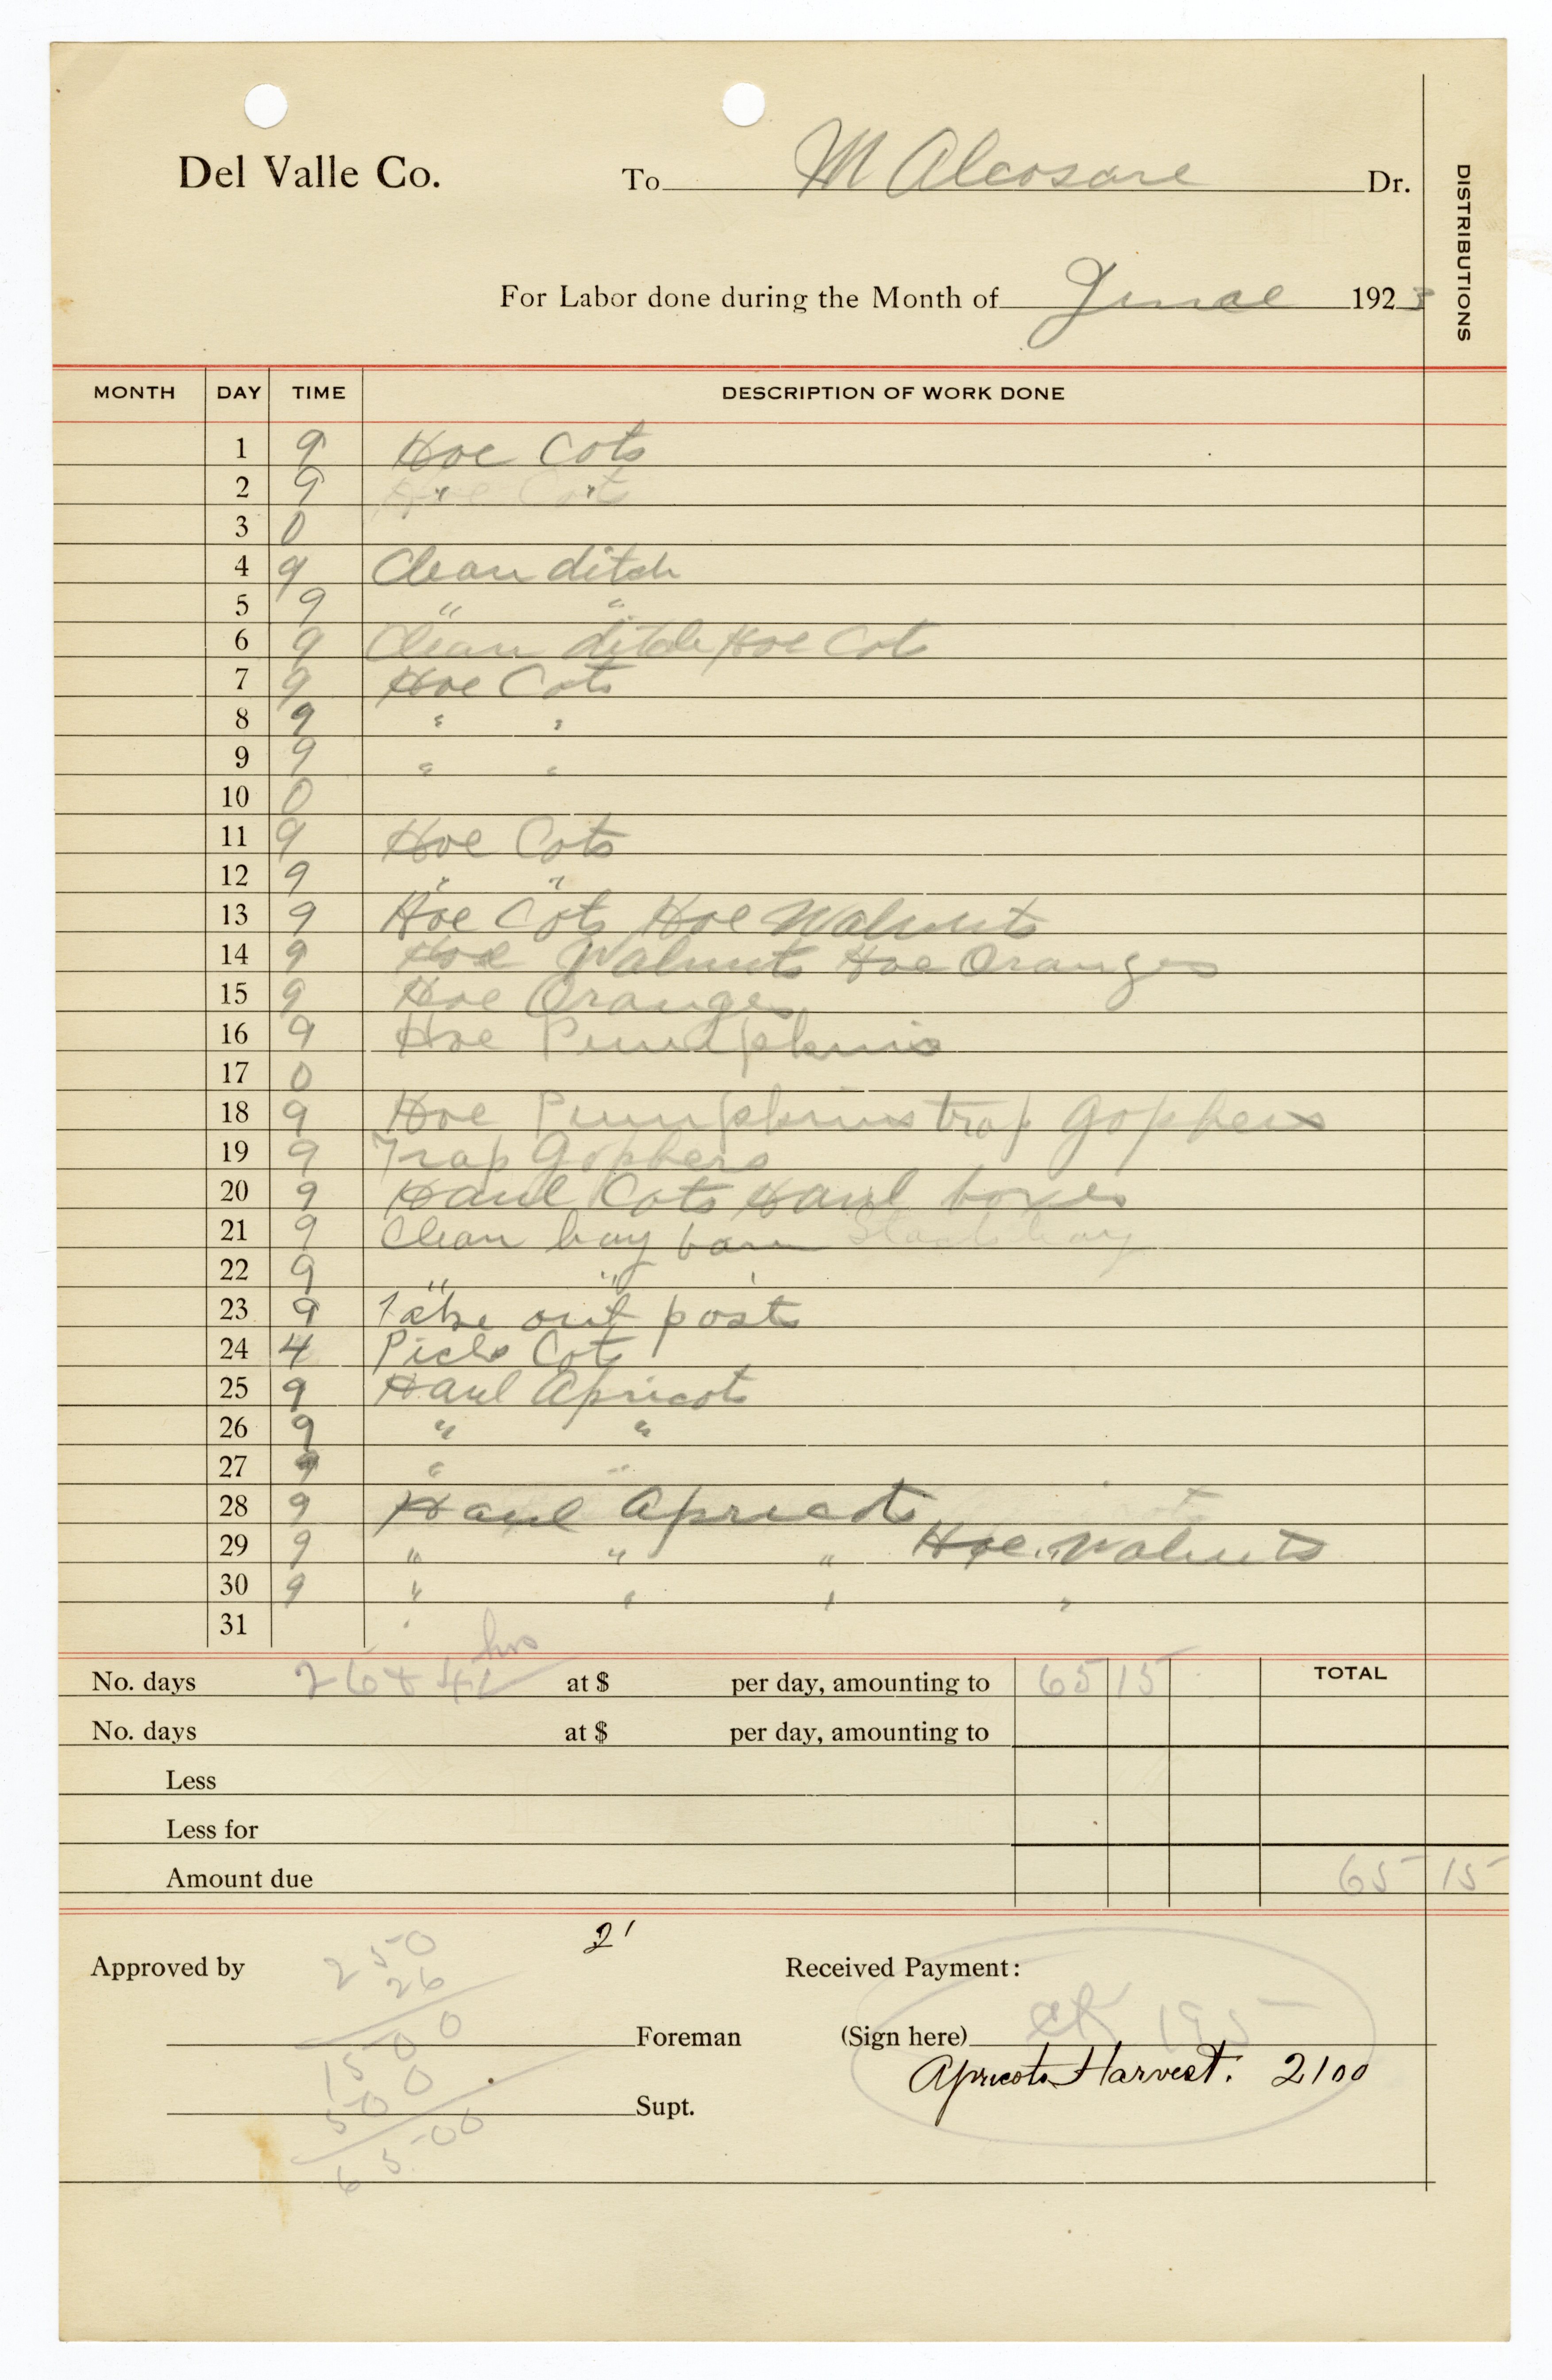 Del Valle Co. To M Alcosare Dr.
DISTRIBUTIONS
For Labor done during the Month of June 1923
MONTH DAY TIME DESCRIPTION OF WORK DONE
1 9 Hoe Cots
2 9 " "
3 0
4 9 Clean ditch
5 9 " "
6 9 Clean ditch Hoe Cots
7 9 Hoe Cots
8 9 " "
9 9 " "
10 0
11 9 Hoe Cots
12 9 " "
13 9 Hoe Cots Hoe Walnuts
14 9 Hoe Walnuts Hoe Oranges
15 9 Hoe Oranges
16 9 Hoe Pumpkins
17 0
18 9 Hoe Pumpkins trap Gophers
19 9 Trap Gophers
20 9 Haul Cots Haul boxes
21 9 Clean hay barn
22 9 " " '
23 9 Take out posts
24 4 Pick Cots
25 9 Haul Apricots
26 9 " "
27 9 " "
28 9 Haul Apricots
29 9 " " " Hoe Walnuts
30 9 " " " "
31
No. days 26 + 4 hrs at $ per day, amounting to 65 15 TOTAL
No. days at $ per day, amounting to
Less
Less for
Amount due 65 15
2'
Approved by Received Payment:
2 50
26
Foreman (Sign here) CK 195
15 00
Apricots Harvest. 2100
50 0
Supt.
65 00